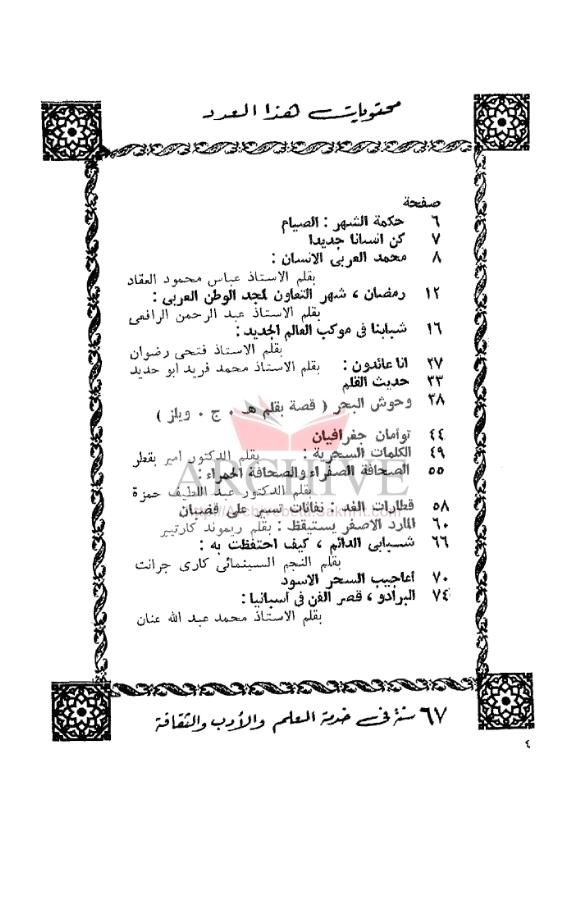 محتويات هذا العدد
صفحة
٦ حكمة الشهر : الصيام
٧ كن انسانا جديدا
٨ محمد العربى الانسان :
بقلم الاستاذ عباس محمود العقاد
١٢ رمضان ، شهر التعاون لمجد الوطن العربى :
بقلم الاستاذ عبد الرحمن الرافعى
١٦ شبابنا فى موكب العالم الجديد :
بقلم الاستاذ فتحى رضوان
٢٧ انا عائدون : بقلم الاستاذ محمد فريد ابو حديد
٣٣ حديث القلم
٣٨ وحوش البحر ( قصة بقلم هـ . ج . ويلز )
٤٤ توأمان جغرافيان
٤٩ الكلمات السحرية : بقلم الدكتور امير بقطر
٥٥ الصحافة الصفراء والصحافة الحمراء :
بقلم الدكتور عبد اللطيف حمزة
٥٨ قطارات الغد : نفاثات تسير على قضبان
٦٠ المارد الاصفر يستيقظ : بقلم ريموند كارتيير
٦٦ شبابى الدائم ، كيف احتفظت به :
بقلم النجم السينمائى كارى جرانت
٧٠ أعاجيب السحر الاسود
٧٤ البرادو ، قصر الفن فى أسبانيا :
بقلم الاستاذ محمد عبد الله عنان
ARCHIVE
٦٧ سنة فى خدمة العلم والأدب والثقافة
٤